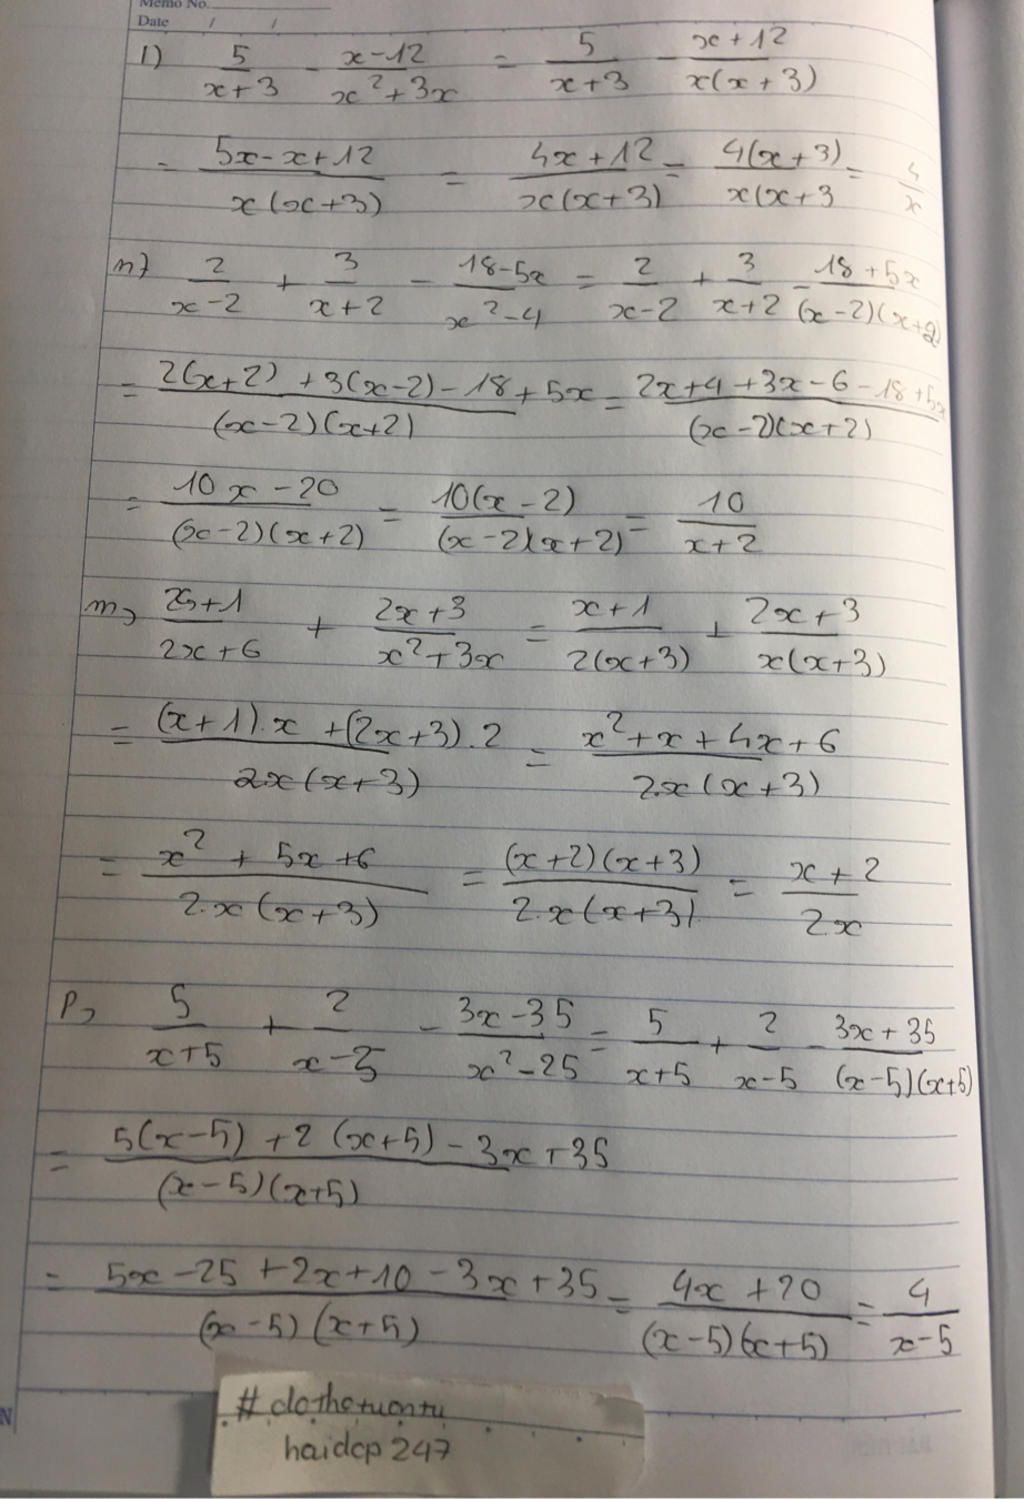 Memo No.
Date / /
1) 5/(x+3) - (x-12)/(x²+3x) = 5/(x+3) - (x+12)/(x(x+3))
= (5x-x+12)/(x(x+3)) = (4x+12)/(x(x+3)) = 4(x+3)/(x(x+3) = 4/x
n) 2/(x-2) + 3/(x+2) - (18-5x)/(x²-4) = 2/(x-2) + 3/(x+2) - (18+5x)/((x-2)(x+2)
= (2(x+2) + 3(x-2) - 18 + 5x)/((x-2)(x+2)) = (2x+4+3x-6-18+5x)/((x-2)(x+2))
= (10x-20)/((x-2)(x+2)) = 10(x-2)/((x-2)(x+2)) = 10/(x+2)
m, +1/(2x+6) + (2x+3)/(x²+3x) = (x+1)/(2(x+3)) + (2x+3)/(x(x+3))
= ((x+1).x + (2x+3).2)/(2x(x+3)) = (x²+x+4x+6)/(2x(x+3))
= (x²+5x+6)/(2.x(x+3)) = (x+2)(x+3)/(2.x(x+3) = (x+2)/(2x)
p, 5/(x+5) + 2/(x-5) - (3x-35)/(x²-25) = 5/(x+5) + 2/(x-5) - (3x+35)/((x-5)(x+5)
= (5(x-5) + 2(x+5) - 3x + 35)/((x-5)(x+5))
= (5x-25+2x+10-3x+35)/((x-5)(x+5)) = (4x+20)/((x-5)(x+5)) = 4/(x-5)
haidcp 247